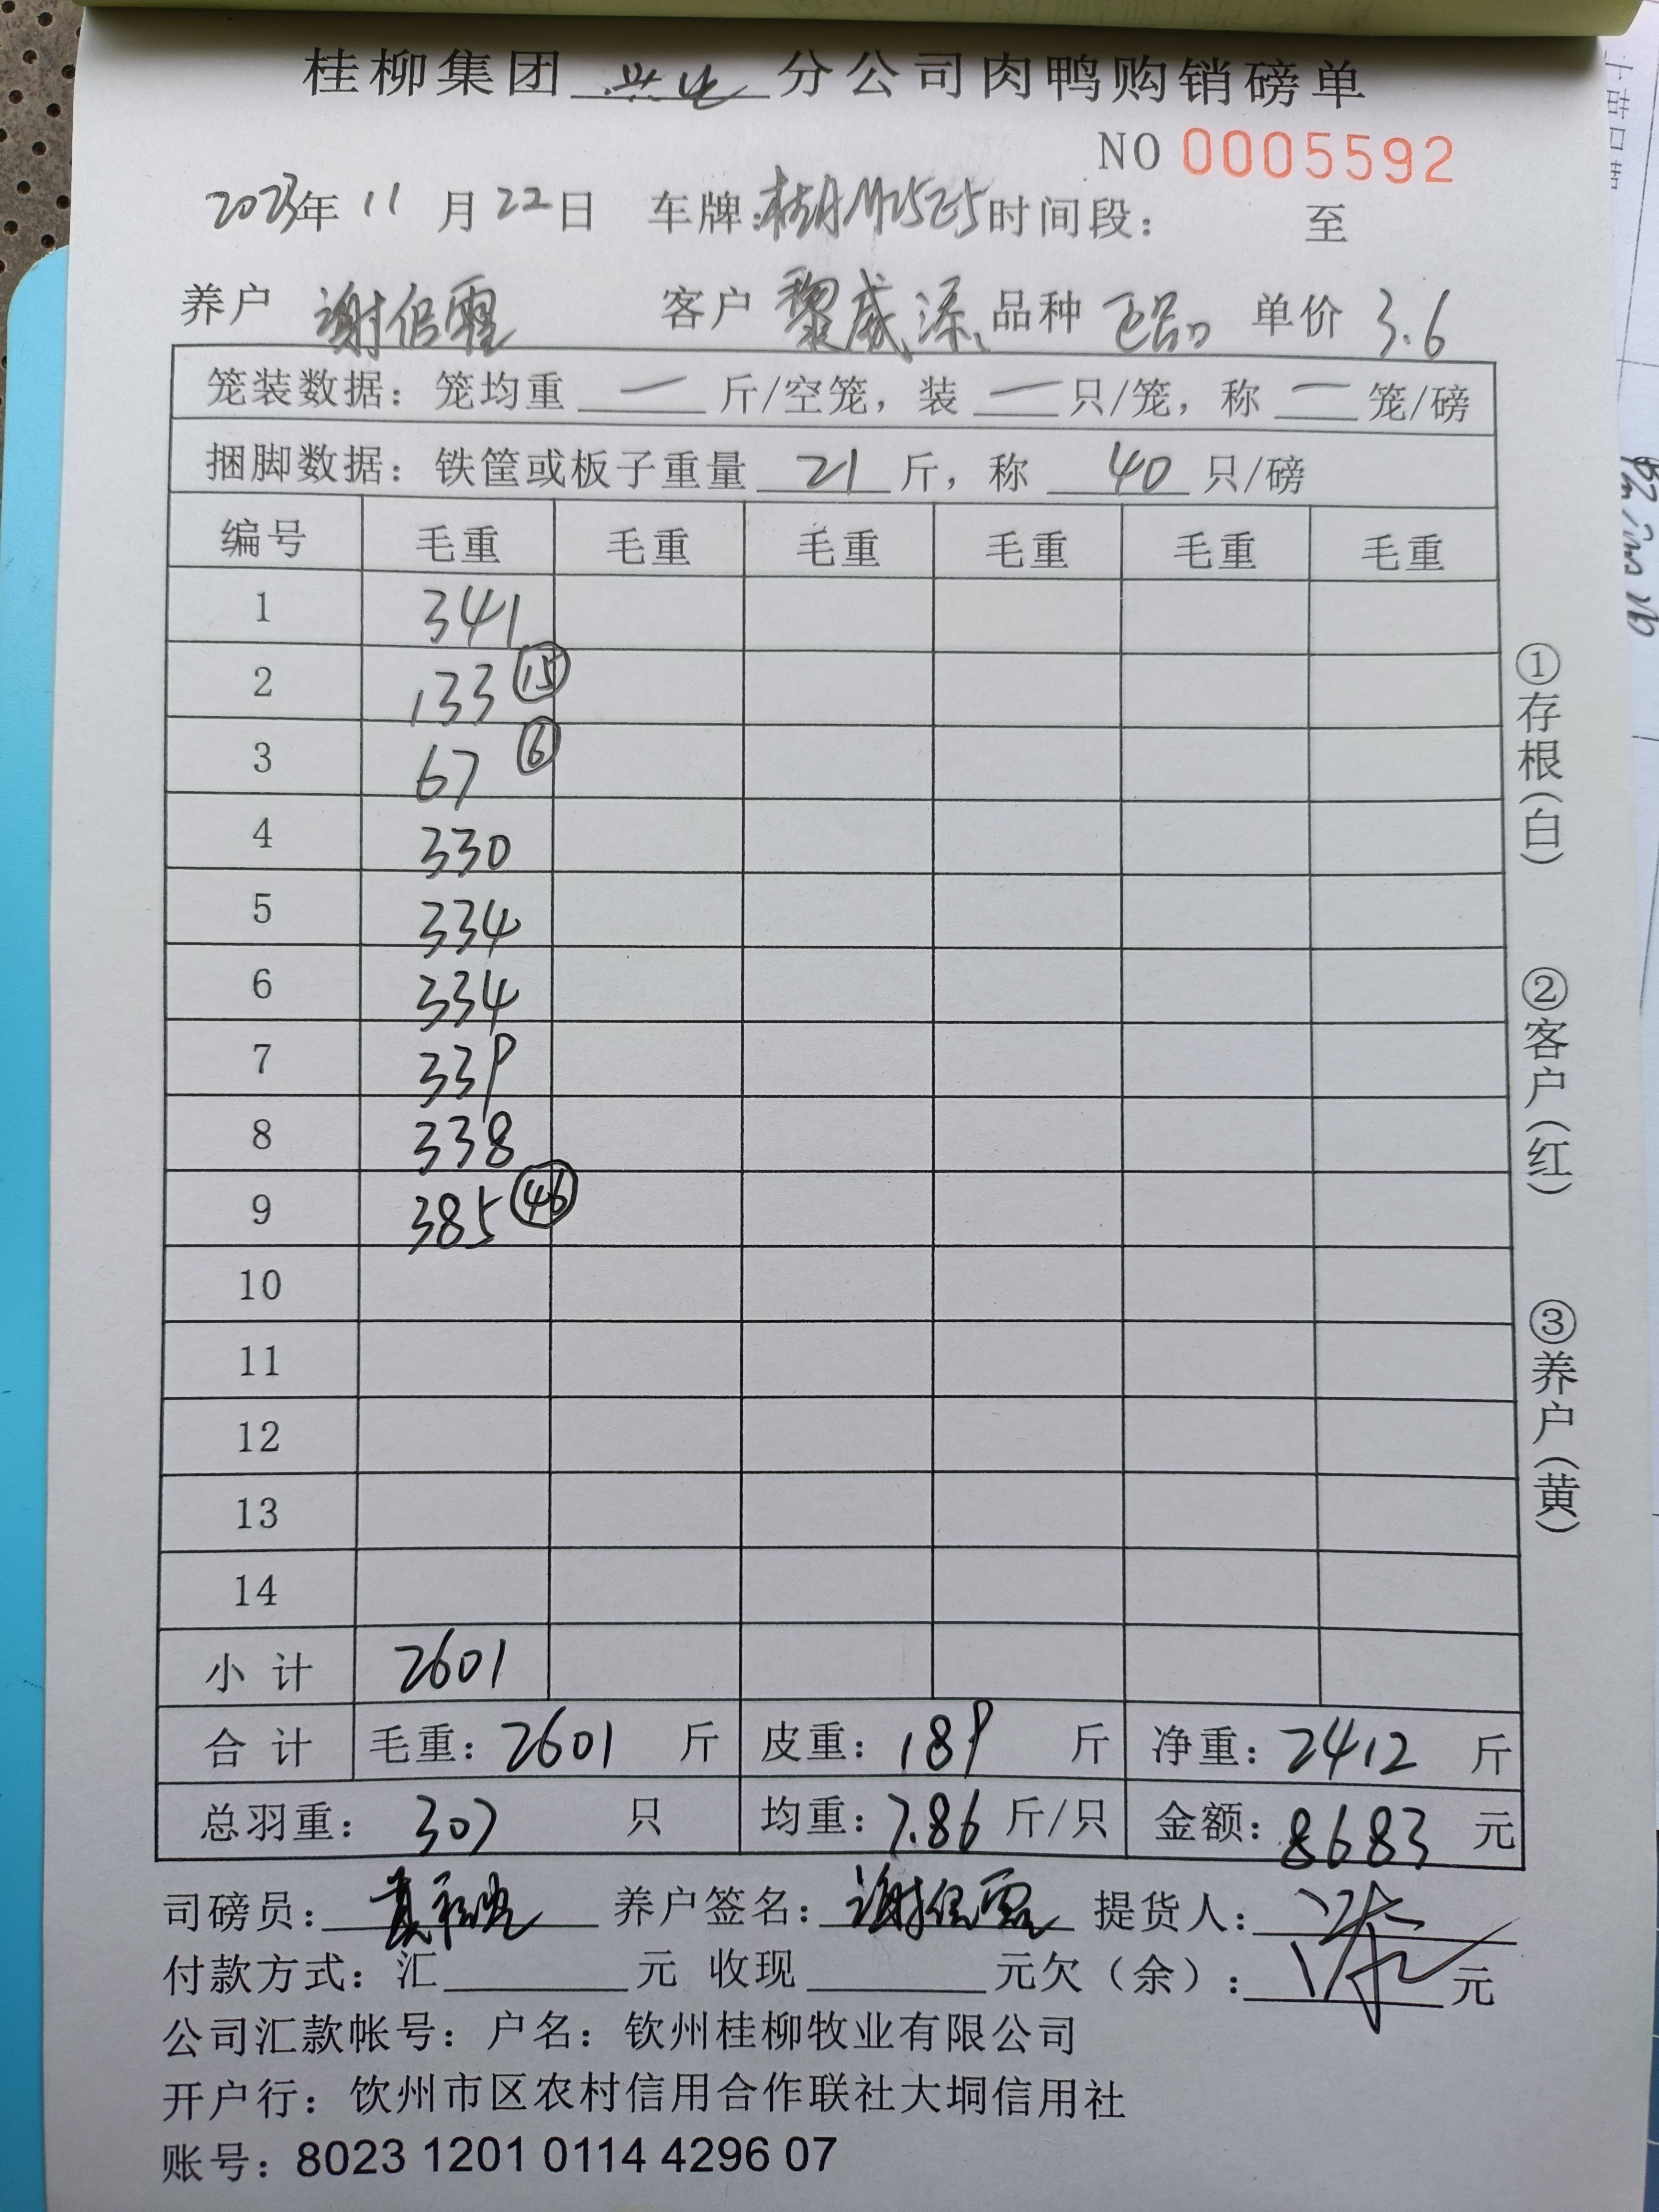 桂柳集团 兴业 分公司肉鸭购销磅单
NO 0005592
2023年 11 月 22 日 车牌: 时间段: 至
养户 谢 客户 黎威添 品种 正品 单价 3.6
笼装数据: 笼均重 — 斤/空笼, 装 — 只/笼, 称 — 笼/磅
捆脚数据: 铁筐或板子重量 21 斤, 称 40 只/磅
编号 毛重 毛重 毛重 毛重 毛重 毛重
1 341
2 133 ⑮
3 67 ⑥
4 330
5 334
6 334
7 339
8 338
9 385 ㊻
10
11
12
13
14
小 计 2601
合 计 毛重: 2601 斤 皮重: 189 斤 净重: 2412 斤
总羽重: 307 只 均重: 7.86 斤/只 金额: 8683 元
司磅员: 养户签名: 谢 提货人:
付款方式: 汇 元 收现 元欠(余): 元
公司汇款帐号: 户名: 钦州桂柳牧业有限公司
开户行: 钦州市区农村信用合作联社大垌信用社
账号: 8023 1201 0114 4296 07
①存根(白)
②客户(红)
③养户(黄)